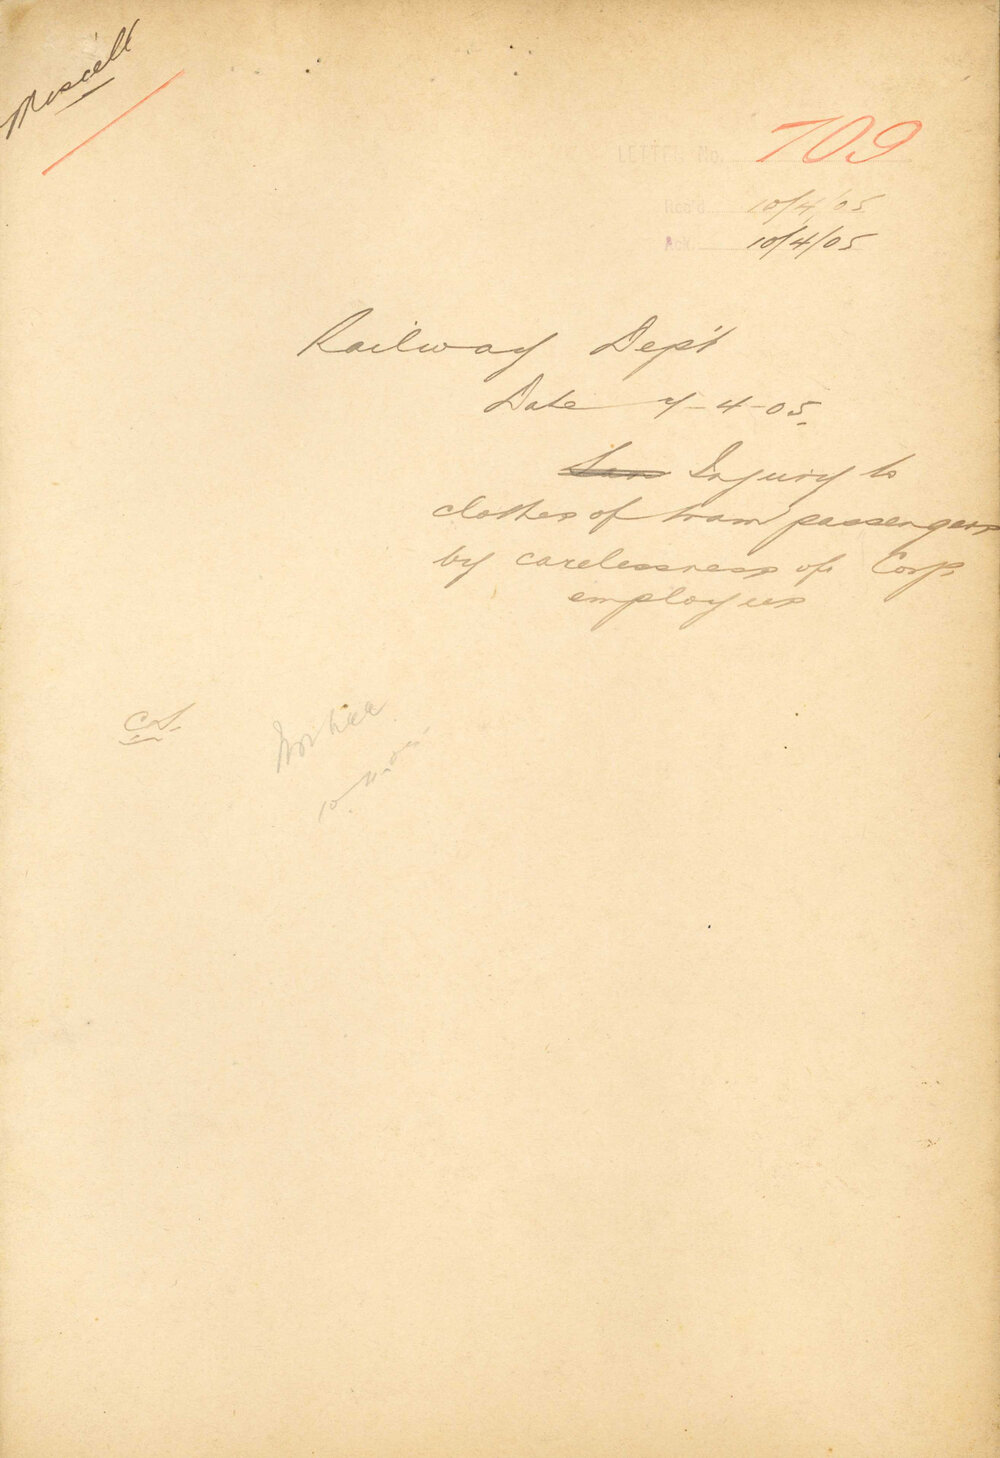 Miscell
LETTER No. 709
Rec'd 10/4/05
Ack 10/4/05
Railway Dep't
Date 7-4-05.
Injury to
clothes of tram passengers
by carelessness of Corp.
employees